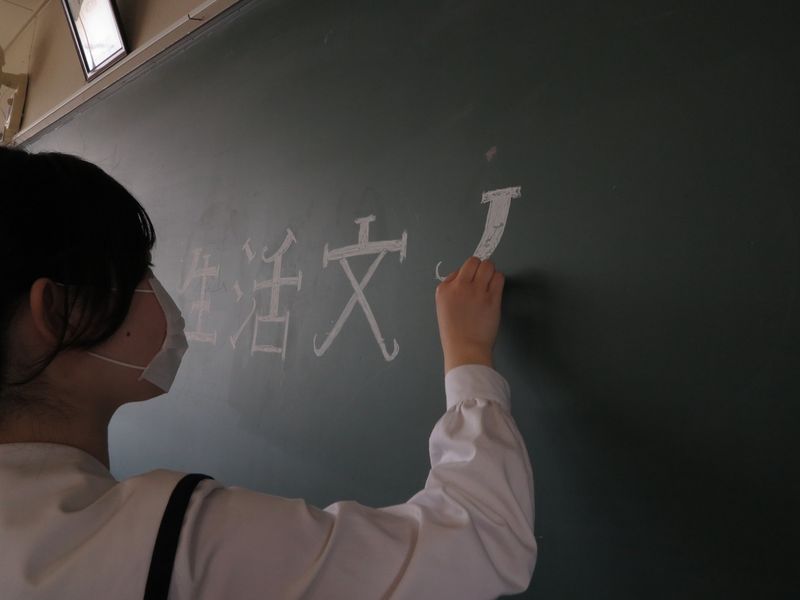 生活文